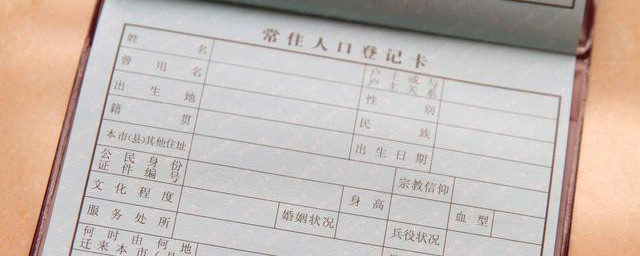 常住人口登记卡
姓名 户主或与户主关系
曾用名 性别
出生地 民族
籍贯 出生日期
本市(县)其他住址 宗教信仰
公民身份证件编号 身高 血型
文化程度 婚姻状况 兵役状况
服务处所
何时由何地迁来本市(县)